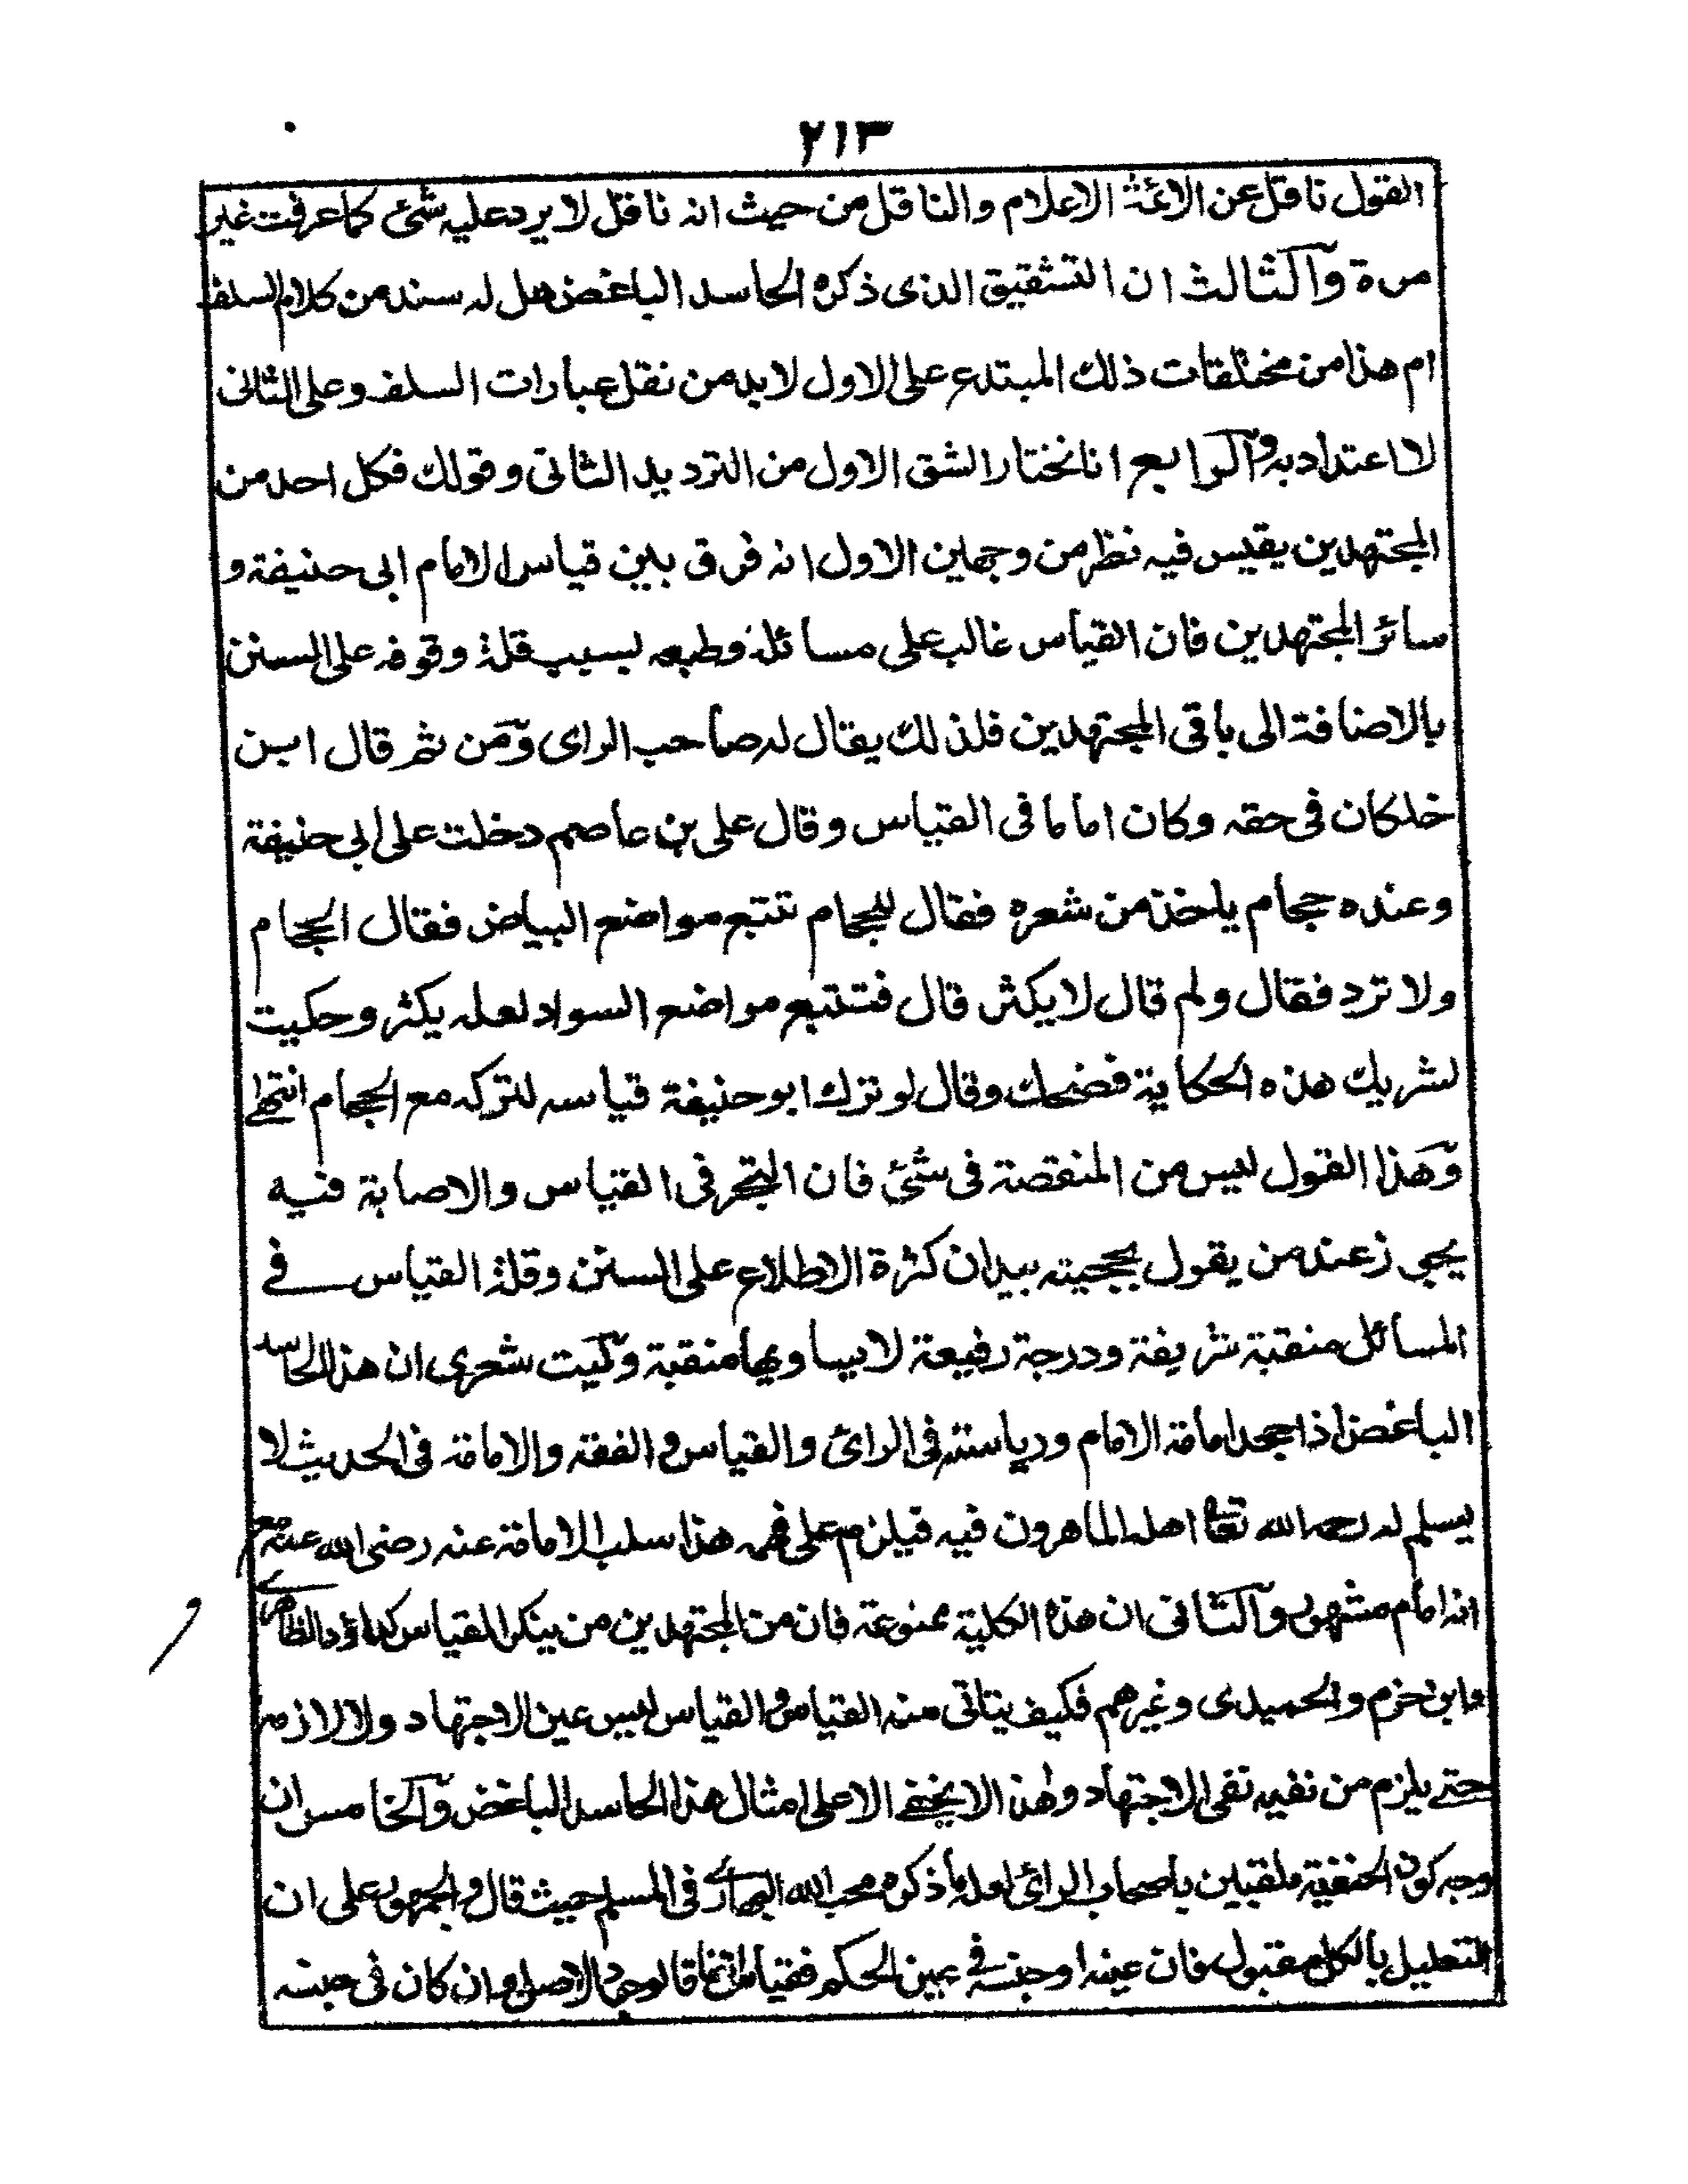 ٢١٣
القول ناقل عن الائمة الاعلام والناقل من حيث انه ناقل لا يرد عليه شئ كما عرفت غير
مرة والثالث ان التشقيق الذى ذكره الحاسد الباغض هل له سند من كلام السلف
ام هذا من مختلقات ذلك المبتدع على الاول لابد من نقل عبارات السلف وعلى الثانى
لا اعتداد به والرابع انا نختار الشق الاول من الترديد الثانى وقولك فكل احد من
المجتهدين يقيس فيه نظر من وجهين الاول انه فرق بين قياس الامام ابى حنيفة و
سائر المجتهدين فان القياس غالب على مسائله وطبعه بسبب قلة وقوفه على السنن
بالاضافة الى باقى المجتهدين فلذلك يقال له صاحب الراى ومن ثم قال ابن
خلكان فى حقه وكان اماما فى القياس وقال على بن عاصم دخلت على ابى حنيفة
وعنده حجام ياخذ من شعره فقال للحجام تتبع مواضع البياض فقال الحجام
ولا تزد فقال ولم قال لا يكثر قال فتتبع مواضع السواد لعله يكثر وحكيت
لشريك هذه الحكاية فضحك وقال لو ترك ابو حنيفة قياسه لتركه مع الحجام انتهى
وهذا القول ليس من المنقصة فى شئ فان التبحر فى القياس والاصابة فيه
يجى ز عند من يقول بحجيته بيد ان كثرة الاطلاع على السنن وقلة القياس فے
المسائل منقبة شريفة ودرجة رفيعة لا يساويها منقبة وليت شعرى ان هذا الحاسد
الباغض اذا جحد امامة الامام ورياسته فى الرائ والقياس و الفقه والامامة فى الحديث لا
يسلم له رحمه الله تعالى اهله الماهرون فيه فيلزم على فهمه هذا سلب الامامة عنه رضى الله عنه مع
انه امام مشهور والثانى ان هذه الكلية ممنوعة فان من المجتهدين من ينكر القياس كداؤد الظاهرے
وابن حزم والحميدى وغيرهم فكيف يتاتى منه القياس والقياس ليس عين الاجتهاد ولا لازمه
حتے يلزم من نفيه نفى الاجتهاد وهذا لا يخفے الا على امثال هذا الحاسد الباغض والخامس ان
وجه كون الحنفية ملقبين باصحاب الرائ لعله ما ذكره محب الله البهارے فى المسلم حيث قال والجمهور على ان
التعليل بالكل مقبول فان عينه او جنسه فے عين الحكم فقياس اتفاقا لوجود الاصل وان كان فى جنسه
و